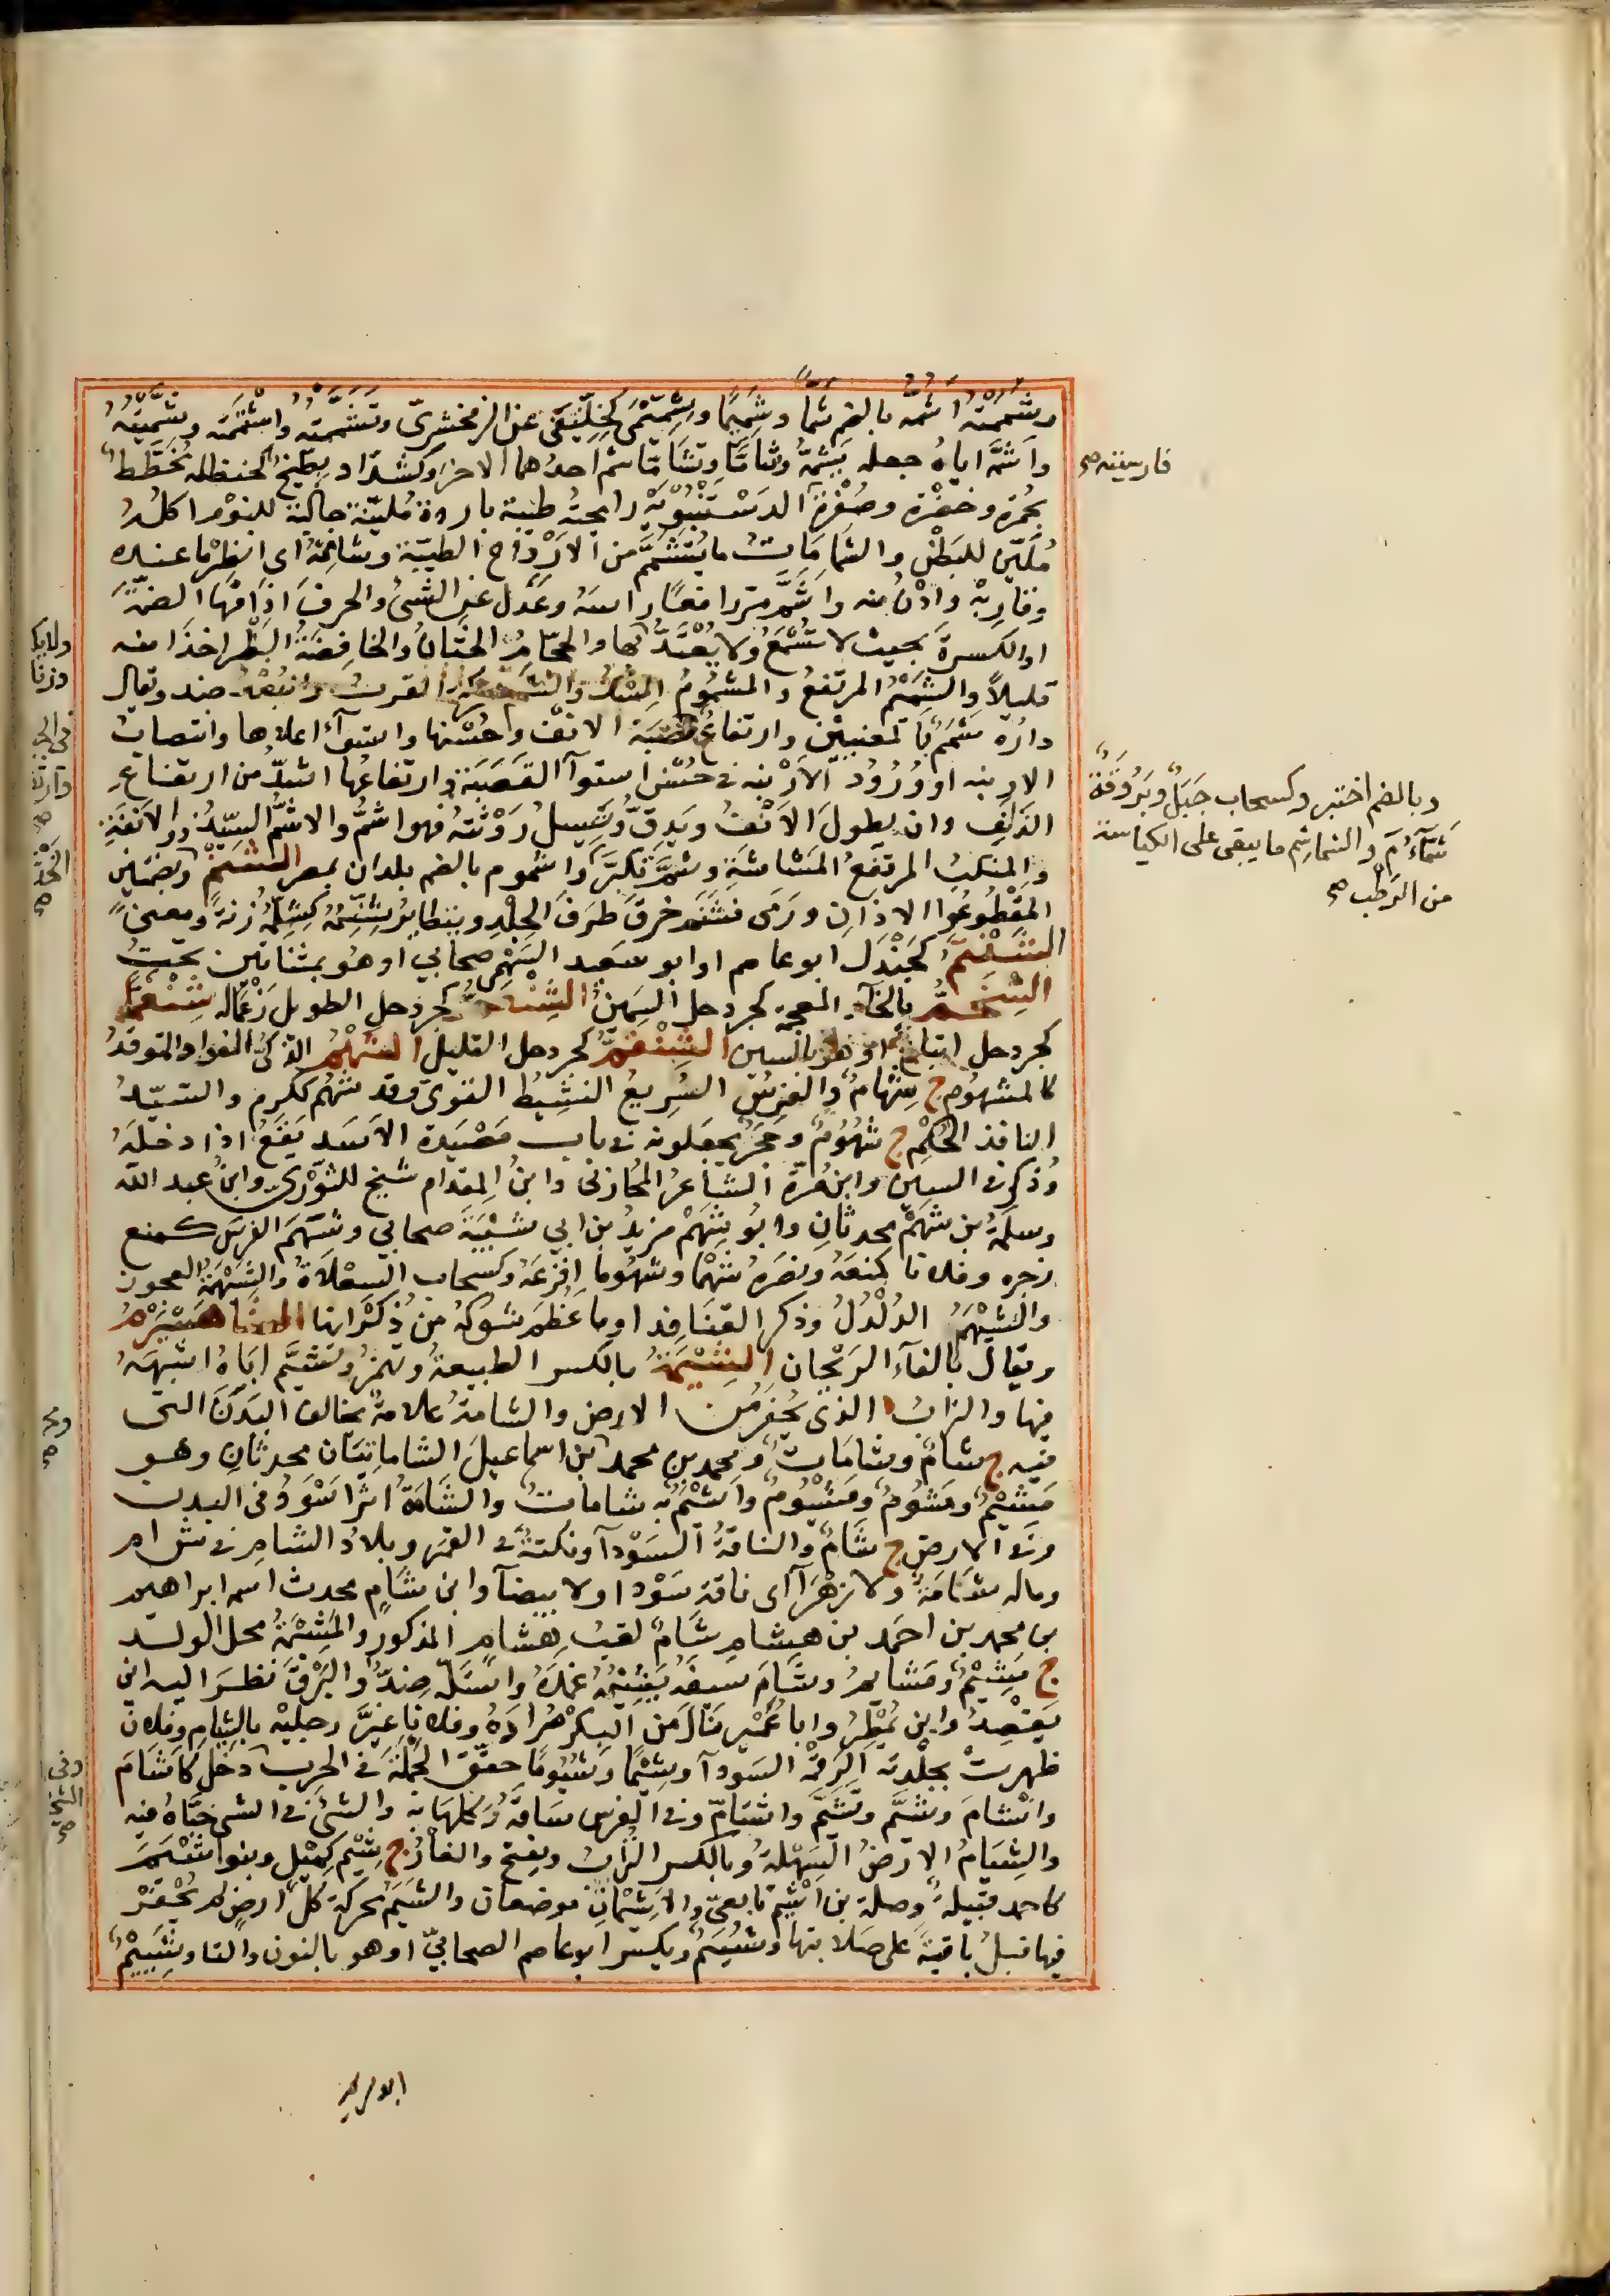 وشَمَمْتُه اَشُمُّه بالضم شمًّا وشَمِيمًا وشِمِّيمَى كخِلِّيفَى عن الزمخشري وتَشَمَّمْتُه واشْتَمَمْتُه وشَمَّمْتُهُ
واَشَمَّه اياهُ جعله يَشُمُّهُ وشامَّا وتشامَّا شم احدُهما الاخرَ وكشدَّاد بِطِّيخٌ كحنظلة مُخَطَّطٌ
بحُمْرة وخضْرة وصُفْرة الدَسْتَنْبُوَيْه رايحتُه طيبة باردة مُلَيِّنة جالبة للنوْم اكلُه
مُلَيِّن للبَطْن والشَمَّامَاتُ ما يُتَشَمَّمُ من الاَرْوَاح الطيِّبَة وشامِمْهُ اى انظرْ ما عنده
وقارِبْهُ وادْنُ منه واَشَمَّ مرّ رافعًا راسَه وعَدَل عن الشئ والحرفَ اذاقها الضمّةَ
او الكسرةَ بحيث لا تُسْمَعُ ولا يُعْتَدُّ بها والحجّامُ الختانَ والخافِضَةُ البَظْرَ اخذا منه
قليلاً والشَمَمُ المرتفعُ والمشمُومُ المسْكُ والشَمَمُ محركة القربُ والبُعْدُ ضد ويقال
دارُه شَمَمٌ بالمعنيين وارتفاعُ قصَبَة الانْف وحُسْنها واستوآء اعلاها وانتصابُ
الارنبة او وُرُودُ الاَرْنبة في حُسْن استوآ القَصَبَة وارتفاعُها اشدُّ من ارتفاع
الذَلَفِ وان يطولَ الاَنْفُ ويَدِقَّ وتَسِيلَ رَوْثَتُه فهو اشمُّ والاشمُّ السيّدُ ذو الاَنَفَة
والمنكبُ المرتفعُ المَشاشَةِ وشَمَّ تكبَّرَ واشموم بالضم بلدان بمصر الشنم وبضمتين
المقْطُوعُوا الاذانِ ورَمَى فشَنَمَ خرقَ طَرَفَ الجلْدِ
الشنتم كجَنْدَل ابو عاصم او ابو سعيد السَهْمي صحابي او هو بمثناتين تحت
الشنخم بالخآء المعجمة كجردحل السمين الشنغم كجردحل الطويل رغما له شنغما
كجردحل اتباع او هو بالسين الشنقم كجردحل القليل الشهم الذكي الفواد المتوقدُ
كالمشهُوم ج شِهامٌ والفرسُ السريعُ النشيطُ القويّ وقد شَهُم ككرم والسيّدُ
النافذ الحُكْم ج شهُومٌ وحجَرٌ يجعلونه في باب مَصْيَدة الاَسَد يَقَعُ اذا دخلَهُ
وذُكِر في السين وابن مُرّة الشاعرُ المُحارِبي وابنُ المِقدام شيخ للثَوْري وابنُ عبد الله
وسلمةُ بن شهْمٍ محدثانِ وابُو شَهْم مزيدُ بن ابي شَيْبَة صحابي وشَهَمَ الفرسَ كمنع
زجره وفلانا كمنَعه ونصَرهُ شهْمًا وشهُومًا افزعَه وكسحاب السِعْلاةُ والشَهْمَةُ العجوز
والشَيْهَمُ الدُلْدُلُ وذكر القنافِذ او ما عَظُم شوكُه من ذُكْرانها الشاهسبرم
ويقال بالفآء الرَيْحان الشيمة بالكسر الطبيعةُ وتهمزُ وتَشَيَّم اباهُ اشبَهَهُ
فيها والترابُ الذي يُحْفَرُ من الارض والشامةُ علامةٌ تخالف البَدَنَ التى
فيه ج شامٌ وشامَاتٌ ومحمد بن محمد بن اسماعيلَ الشاماتيّان محدثانِ وهو
مَشِيمٌ ومَشُومٌ ومَشْيُومٌ واَشْيَمُ به شاماتٌ والشَامَةُ اثرٌ اَسْوَدُ في البدن
وفي الارض ج شَامٌ والناقةُ السَوْدآ ونكتةٌ في القمر وبلادُ الشامِ في ش ا م
وماله شَامَةٌ ولا زهْرَآ اى ناقة سَوْدا ولا بيضآ وابن شامٍ محدث اسمه ابراهيم
بن محمد بن احمد بن هِشامٍ وشَامٌ لقبُ هِشامٍ المذكور والمَشِيمَةُ محل الولد
ج مَشِيْمٌ ومَشايم وشَامَ سيفَه يَشِيْمُه غمَدَهُ واسْتَلّه ضِدٌّ والبَرْقَ نظَرَ اليه اين
يَقْصِدُ واين يُمْطِرُ وابا عُمَيْرٍ نال من البِكْر مُرادَهُ وفلانا غيَّر رجليْه بالشِيام وفلان
ظهرتْ بجلْدته الرقمة السَودآ وشَيْمًا وشُيُومًا حقّق الحَمْلَة في الحرب ودَخَل كاَشامَ
وانْشامَ وشَيَّم وتَشَيَّم واشتام وفي الفرس ساقَهُ ركلها به والشئ في الشئ خبَّاهُ فيه
والشِيَامُ الارضُ السَهْلةُ وبالكسر التُرابُ ويفتح والفارُ ج شِيْم كمِيْل وبنو اَشْيَمَ
كاحمد قبيلة وصلة بن اَشْيَم تابعيّ والاَشْيَمانِ موضعان والشَيَمُ محركة كلُّ ارضٍ لم يُحْفَرْ
فيها قبلُ باقيةٌ على صَلابتها وشُيَيمٌ ويكسَر ابو عاصم الصحابيّ او هو بالنون والتا وشِيَيْمٌ
فارسيته صح
وبالضم اختبر وكسحاب جَبَلٌ وبَرُوقةٌ
شَمَّآءُ م والشماشِم ما يبقى على الكباسة
من الرُطَب صح
ابلا ير يد